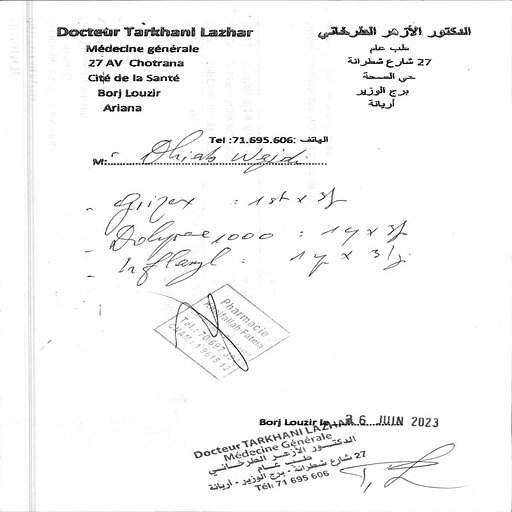 Docteur Tarkhani Lazhar
Médecine générale
27 AV Chotrana
Cité de la Santé
Borj Louzir
Ariana
الدكتور الأزهر الطرخاني
طب عام
27 شارع شطرانة
حي الصحة
برج الوزير
أريانة
Tel :71.695.606: الهاتف
M: Dhiab Wajdi
- Grizex : 1st x 3/j
- Doliprane 1000 : 1 x 3/j
- Inflamyl : 1 x 3/j
Pharmacie
Fatma
Tel.: 70 697
CNAM: 1 9615 12
Borj Louzir le 26 JUIN 2023
Docteur TARKHANI LAZHAR
Médecine Générale
الدكتور الأزهر الطرخاني
طب عام
27 شارع شطرانة - برج الوزير - أريانة
Tél: 71 695 606